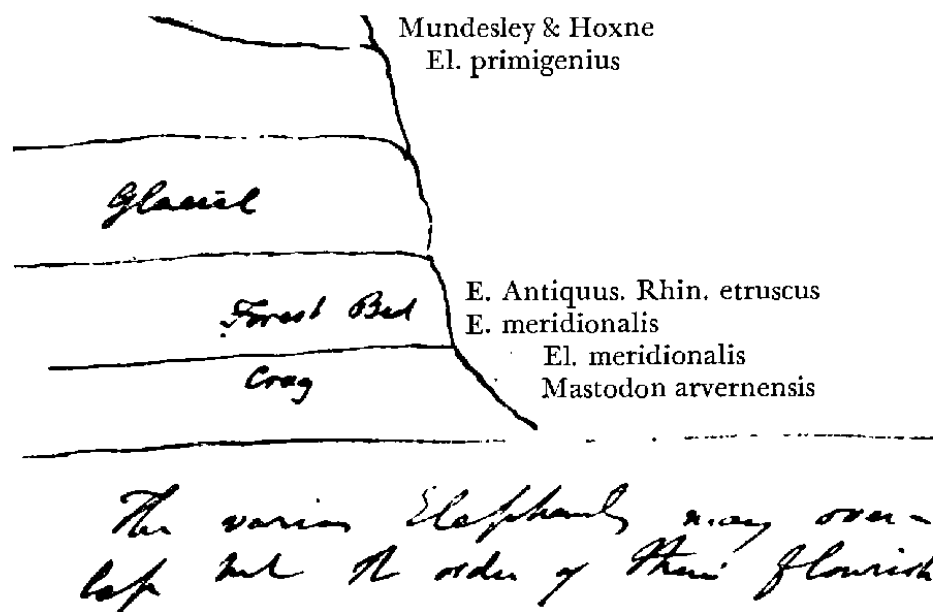 Mundesley & Hoxne
El. primigenius
Glacial
E. Antiquus. Rhin. etruscus
Forest Bed
E. meridionalis
El. meridionalis
Crag
Mastodon arvernensis
The various Elephants may over-
lap but the order of their flourish